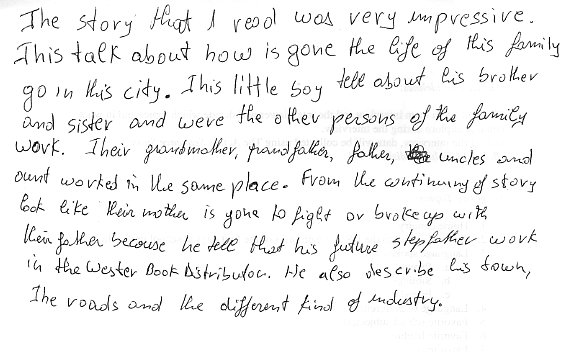 The story that I read was very impressive.
This talk about how is gone the life of this family
go in this city. This little boy tell about his brother
and sister and were the other persons of the family
work. Their grandmother, grandfather, father, uncles and
ount worked in the same place. From the continuing of story
look like their mother is gone to fight or broke up with
their father because he tell that his future stepfather work
in the Wester Book Distributor. He also describe his town,
The roads and the different kind of industry.